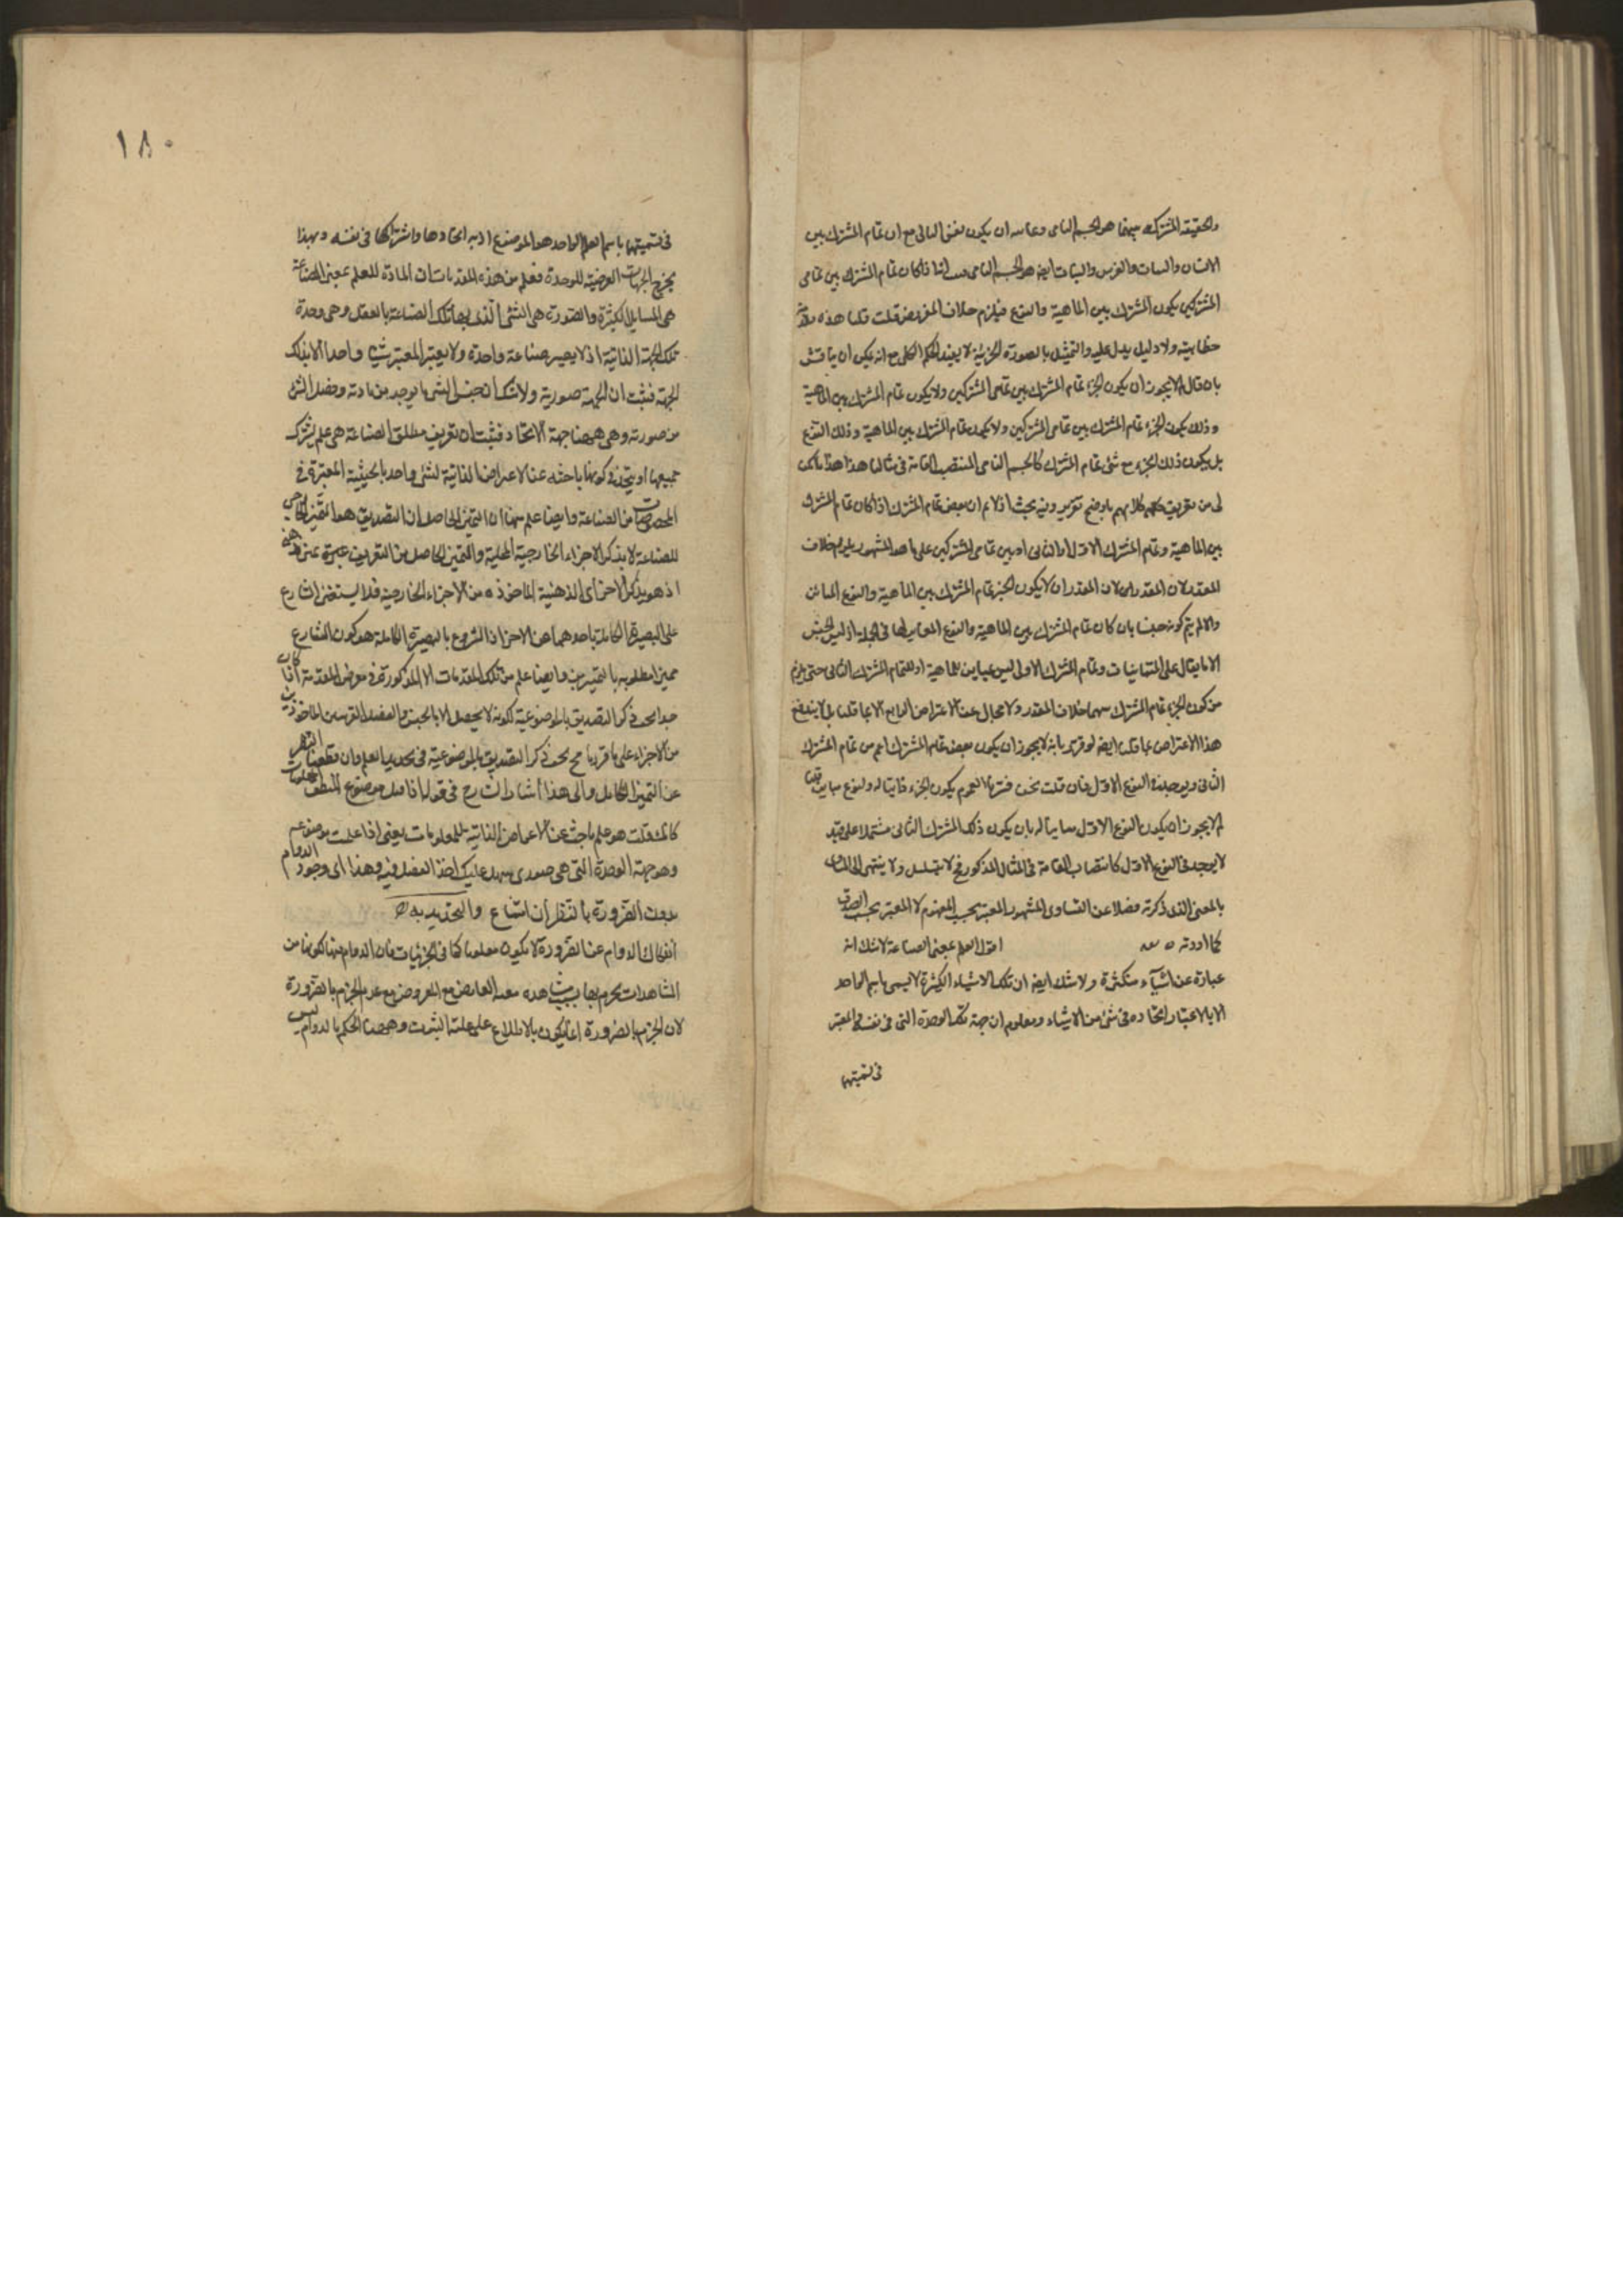 والحقيقة المشتركة بينهما هو الجسم النامى وغايته ان يكون نفس الثانى مع ان تمام المشترك بين
الانسان والنبات والفرس والنبات ايضا هو الجسم النامى اذا كان تمام المشترك بين تمامى
المشتركين يكون المشترك بين الماهية والنوع فيلزم خلاف المفروض قلت تلك هذه مقدمة
خطابية ولا دليل يدل عليه والتمثيل بالصورة الجزئية لا يفيد الحكم الكلى مع انه يمكن ان يناقش
بان يقال لم لا يجوز ان يكون الجزء تمام المشترك بين تمامى المشتركين ولا يكون تمام المشترك بين الماهية
وذلك يكون الجزء تمام المشترك بين تمامى المشتركين ولا يكون تمام المشترك بين الماهية وذلك النوع
بل يكون ذلك الجزء مع شئ تمام المشترك كالجسم النامى المنتصب القامة فى مثالنا هذا هذا ما يمكن
لى من تعريف كلامهم باوضح تقرير وفيه بحث اذ لا نم ان بعض تمام المشترك اذا كان تمام المشترك
بين الماهية وتمام المشترك الاول او الثانى او بين تمامى المشتركين على ما هو المشهور يلزم خلاف
المقدر لان المقدر ان لا يكون الجزء تمام المشترك بين الماهية والنوع المباين
والا لم يتم كونه جنسا بان كان تمام المشترك بين الماهية والنوع المباين لها فى الجملة اذ ليس الجنس
الا ما يقال على المتباينات وتمام المشترك الاول ليس بمباين للماهية او لتمام المشترك الثانى حتى يلزم
من كون الجزء تمام المشترك بينهما خلاف المقدر ولا مجال عن الاعتراض الرابع الا بما قلنا بل لا يندفع
هذا الاعتراض بما قلت ايضا لو قرر بانه لم لا يجوز ان يكون بعض تمام المشترك اعم من تمام المشترك
الثانى ويوجد فى النوع الاول فان قلت نحن فسرنا العموم بكون الجزء ذاتيا له ولنوع مباين قلنا
لم لا يجوز ان يكون النوع الاول مباينا له بان يكون ذلك المشترك الثانى مشتملا على قيد
لا يوجد فى النوع الاول كانتصاب القامة فى المثال المذكور فح لا يتسلسل ولا ينتهى الى المساوى
بالمعنى الذى ذكرته فضلا عن التساوى المشهور المعتبر بحسب المفهوم لا المعتبر بحسب الصدق
كما اردته اقول العلم بمعنى الصناعة لا شك انه
عبارة عن اشياء متكثرة ولا شك ايضا ان تلك الاشياء الكثيرة لا يسمى باسم الواحد
الا بالاعتبار اتحاده فى شئ من الاشياء ومعلوم ان جهة تلك الوحدة التى فى نفسه المعتبر
فى تسميتها
١٨٠
فى تسميتها باسم العلم الواحد هو الموضوع اذ به اتحادها واشتراكها فى نفسه وبهذا
يخرج الجهات العرضية للوحدة فعلم من هذه المقدمات ان المادة للعلم بمعنى الصناعة
هى المسايل الكثيرة والصورة هى الشئ الذى بها تلك الصناعة بالفعل وهى وحدة
تلك الجهة الذاتية اذ لا يصير صناعة واحدة ولا يعتبر المعتبر شيئا واحدا الا بذلك
الجهة فثبت ان الجهة صورية ولا شك ان جنس الشئ ما يوجد من مادته وفصل الشئ
من صورته وهى ههنا جهة الاتحاد فثبت ان تعريف مطلق الصناعة هى علم يشترك
جميعها او يتحد فى كونها باحثة عن الاعراض الذاتية لشئ واحد بالحيثية المعتبرة فى
المخصوصات من الصناعة وايضا علم منها ان التميز الحاصل ان التصديق هو التميز الخارجى
للصناعة لا بذكر الاجزاء الخارجية المحلية والتميز الحاصل من التعريف عبرة عن ذهنى
اذ هو يذكر الاجزاى الذهنية الماخوذة من الاجزاء الخارجية فلا يستغنى الشارع
على البصيرة الكاملة باحدهما عن الاخر اذ الشروع بالبصيرة الكاملة هو كون الشارع
مميزا مطلوبه بالتميزين وايضا علم من تلك المقدمات المذكورة فى معرض المقدمة اذا كان
حدا يجب ذكر التصديق بالموضوعية لكونه لا يحصل الا بالجنس والفصل القريبين الماخوذين
من الاجزاء على ما قررنا فح يجب ذكر التصديق بالموضوعية فى تحديد العلم وان قطعنا النظر
عن التميز الكامل والى هذا اشار الشارح فى قوله اذا قيل موضوع المنطق المعلومات
كانك قلت هو علم باحث عن الاعراض الذاتية للمعلومات يعنى اذا علمت موضوعه
وهو جهة الوحدة التى هى صورى سهل عليك اخذ الفصل فيه وهذا اى وجود الدوام
بدون الضرورة بالنظر ان امتناع والتحديد به
انفكاك الدوام عن الضرورة لا يكون معلوما كما فى الجزئيات فان الدوام منها لكونها من
المشاهدات يحزم بها بسبب مشاهدة معية العارض مع المعروض مع عدم الجزم بالضرورة
لان الجزم بالضرورة انما يكون بالاطلاع على علة الثبوت وههنا الحكم بالدوام ليس